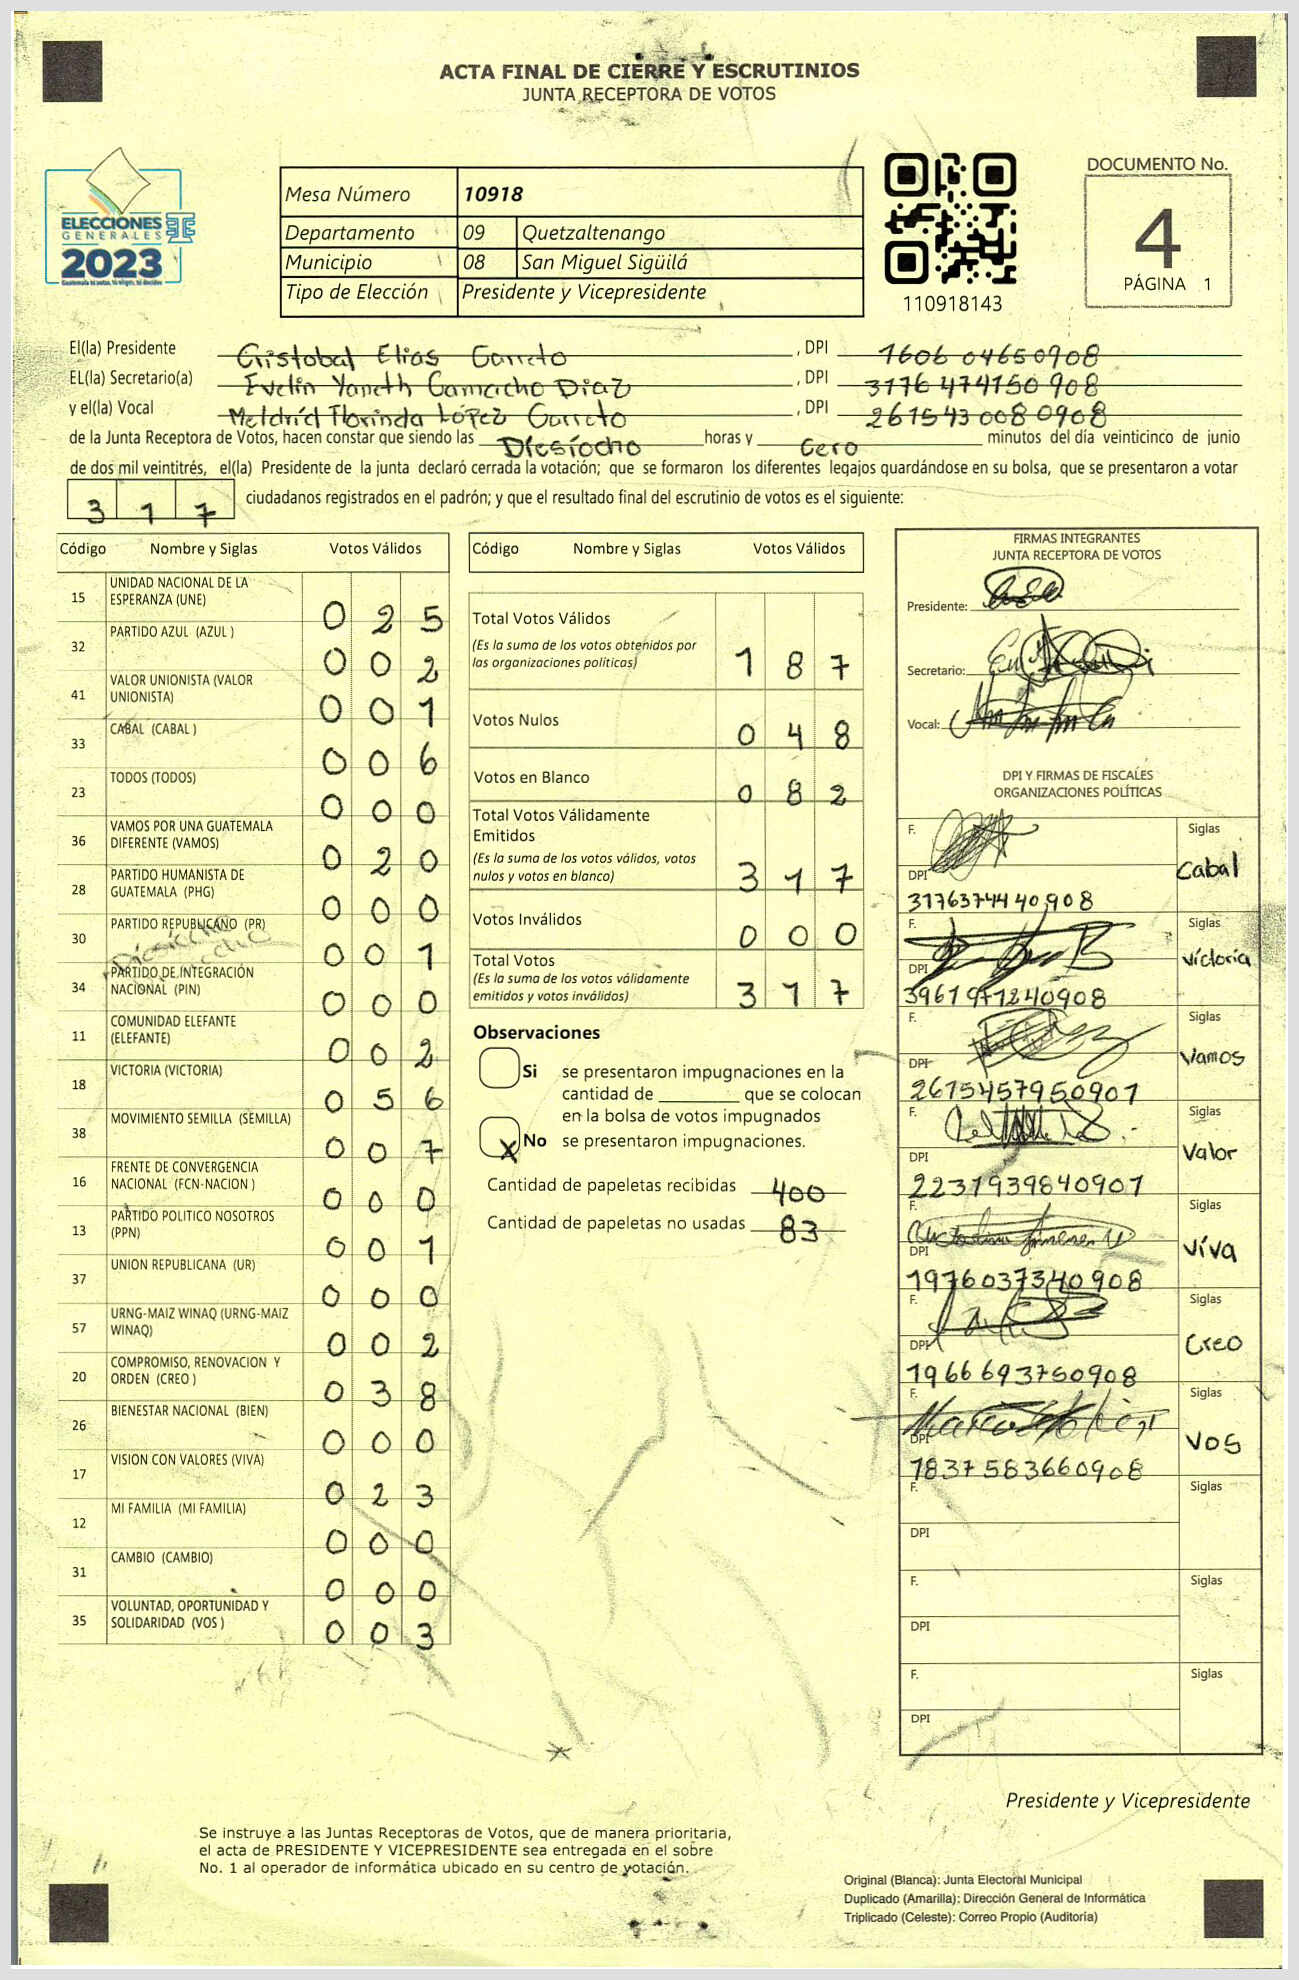 ACTA FINAL DE CIERRE Y ESCRUTINIOS
JUNTA RECEPTORA DE VOTOS
ELECCIONES
GENERALES
2023
Mesa Número 10918
Departamento 09 Quetzaltenango
Municipio 08 San Miguel Sigüilá
Tipo de Elección Presidente y Vicepresidente
110918143
DOCUMENTO No.
4
PÁGINA 1
El(la) Presidente Cristobal Elias Carreto , DPI 1606 04650908
EL(la) Secretario(a) Evelin Yaneth Camacho Díaz , DPI 3176 474150 908
y el(la) Vocal Florinda López Carreto , DPI 261543 008 0908
de la Junta Receptora de Votos, hacen constar que siendo las Diesíocho horas y Cero minutos del día veinticinco de junio
de dos mil veintitrés, el(la) Presidente de la junta declaró cerrada la votación; que se formaron los diferentes legajos guardándose en su bolsa, que se presentaron a votar
3 1 7 ciudadanos registrados en el padrón; y que el resultado final del escrutinio de votos es el siguiente:
Código Nombre y Siglas Votos Válidos
15 UNIDAD NACIONAL DE LA ESPERANZA (UNE) 0 2 5
32 PARTIDO AZUL (AZUL ) 0 0 2
41 VALOR UNIONISTA (VALOR UNIONISTA) 0 0 1
33 CABAL (CABAL ) 0 0 6
23 TODOS (TODOS) 0 0 0
36 VAMOS POR UNA GUATEMALA DIFERENTE (VAMOS) 0 2 0
28 PARTIDO HUMANISTA DE GUATEMALA (PHG) 0 0 0
30 PARTIDO REPUBLICANO (PR) 0 0 1
34 PARTIDO DE INTEGRACIÓN NACIONAL (PIN) 0 0 0
11 COMUNIDAD ELEFANTE (ELEFANTE) 0 0 2
18 VICTORIA (VICTORIA) 0 5 6
38 MOVIMIENTO SEMILLA (SEMILLA) 0 0 7
16 FRENTE DE CONVERGENCIA NACIONAL (FCN-NACION ) 0 0 0
13 PARTIDO POLITICO NOSOTROS (PPN) 0 0 1
37 UNION REPUBLICANA (UR) 0 0 0
57 URNG-MAIZ WINAQ (URNG-MAIZ WINAQ) 0 0 2
20 COMPROMISO, RENOVACION Y ORDEN (CREO ) 0 3 8
26 BIENESTAR NACIONAL (BIEN) 0 0 0
17 VISION CON VALORES (VIVA) 0 2 3
12 MI FAMILIA (MI FAMILIA) 0 0 0
31 CAMBIO (CAMBIO) 0 0 0
35 VOLUNTAD, OPORTUNIDAD Y SOLIDARIDAD (VOS ) 0 0 3
Código Nombre y Siglas Votos Válidos
Total Votos Válidos 1 8 7
(Es la suma de los votos obtenidos por
las organizaciones políticas)
Votos Nulos 0 4 8
Votos en Blanco 0 8 2
Total Votos Válidamente
Emitidos
(Es la suma de los votos válidos, votos
nulos y votos en blanco) 3 1 7
Votos Inválidos 0 0 0
Total Votos
(Es la suma de los votos válidamente
emitidos y votos inválidos) 3 1 7
Observaciones
Si se presentaron impugnaciones en la
cantidad de ________ que se colocan
en la bolsa de votos impugnados
X No se presentaron impugnaciones.
Cantidad de papeletas recibidas 400
Cantidad de papeletas no usadas 83
FIRMAS INTEGRANTES
JUNTA RECEPTORA DE VOTOS
Presidente:
Secretario:
Vocal:
DPI Y FIRMAS DE FISCALES
ORGANIZACIONES POLÍTICAS
F. Siglas Cabal
DPI 3176374440908
F. Siglas Víctoria
DPI 3961971240908
F. Siglas Vamos
DPI 2615457950901
F. Siglas Valor
DPI 2231939840901
F. Siglas Víva
DPI 1976037340908
F. Siglas Creo
DPI 1966693750908
F. Siglas VOS
DPI 1837583660908
F. Siglas
DPI
F. Siglas
DPI
F. Siglas
DPI
Presidente y Vicepresidente
Se instruye a las Juntas Receptoras de Votos, que de manera prioritaria,
el acta de PRESIDENTE Y VICEPRESIDENTE sea entregada en el sobre
No. 1 al operador de informática ubicado en su centro de votación.
Original (Blanca): Junta Electoral Municipal
Duplicado (Amarilla): Dirección General de Informática
Triplicado (Celeste): Correo Propio (Auditoría)